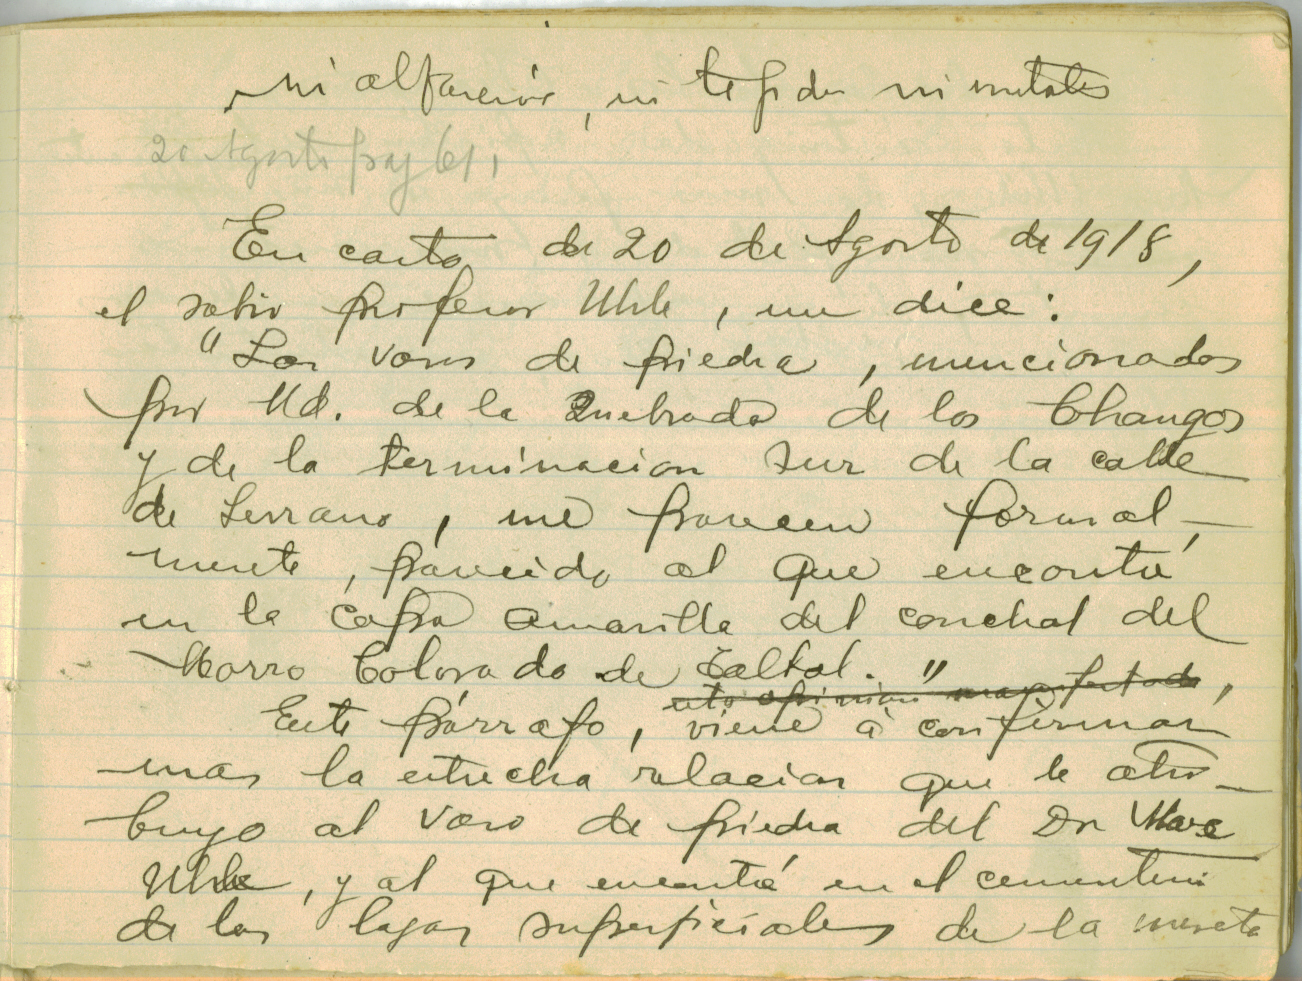 ni alfarería, ni tejidos ni metales
20 Agosto pag 61,
En carta de 20 de Agosto de 1918,
el sabio profesor Uhle, me dice:
"Los vasos de piedra, mencionados
por Ud. de la Quebrada de los Changos
y de la terminacion sur de la calle
de Serrano, me parecen formal-
mente, parecido al que encontré
en la capa amarilla del conchal del
Morro Colorado de Taltal."
esta opinion manifestada,
Este párrafo, viene á confirmar
mas la estrecha relacion que le atri-
buyo al vaso de piedra del Dr Max
Uhle, y al que encontré en el cementerio
de las lajas superficiales de la meseta